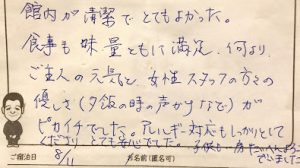 館内が清潔でとてもよかった。
食事も味量ともに満足、何より、
ご主人の元気と女性スタッフの方々の
優しさ(夕飯の時の声かけなど)が
ピカイチでした。アレルギー対応もしっかりとして
くださり、とても安心でした。子供も一房
でいました
ご宿泊日 8/11 お名前(匿名可)